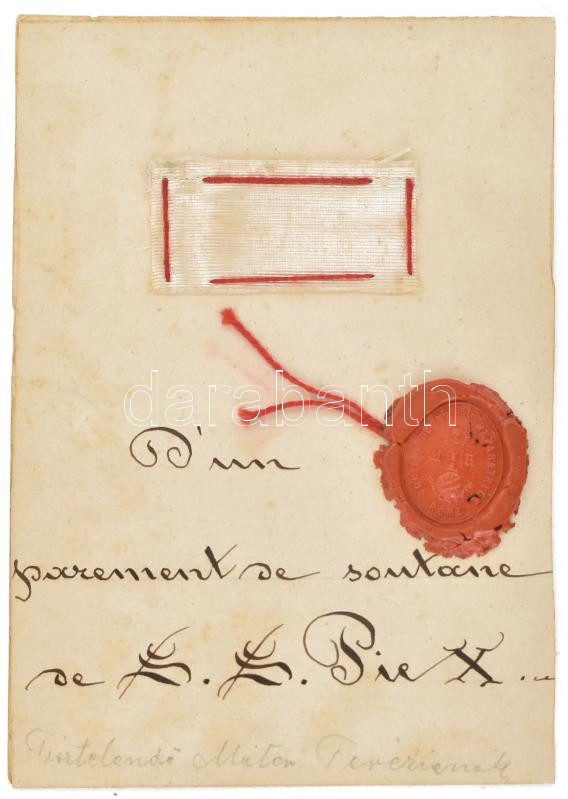 darabanth
D'un
parement de soutane
de S. S. Pie X.
Tisztelendő Máter Teréziának